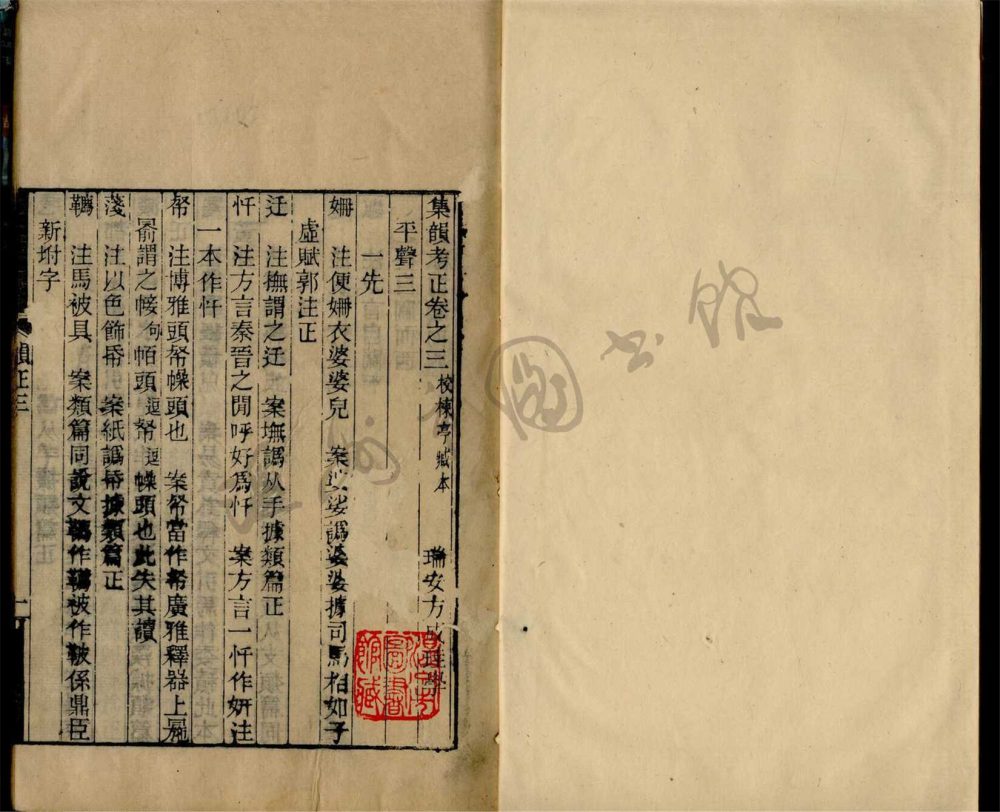 集韻考正卷之三 校棟亭藏本 瑞安方成珪學
平聲三
一先
姍 注便姍衣婆娑兒 案婆娑譌婆婆據司馬相如子
虛賦郭注正
迁 注撫謂之迁 案墲譌从手據類篇正
忏 注方言秦晉之閒呼好爲忏 案方言一忏作妍注
一本作忏
帤 注博雅頭帤幧頭也 案帤當作帤廣雅釋器上
謂之㡋句帞頭逗帤逗幧頭也此失其讀
淺 注以色飾帋 案紙譌帋據類篇正
韉 注馬被具 案類篇同說文韉作韉被作鞁係鼎臣
新坿字
韻正三
一
溫州圖書館
溫州市圖書館藏